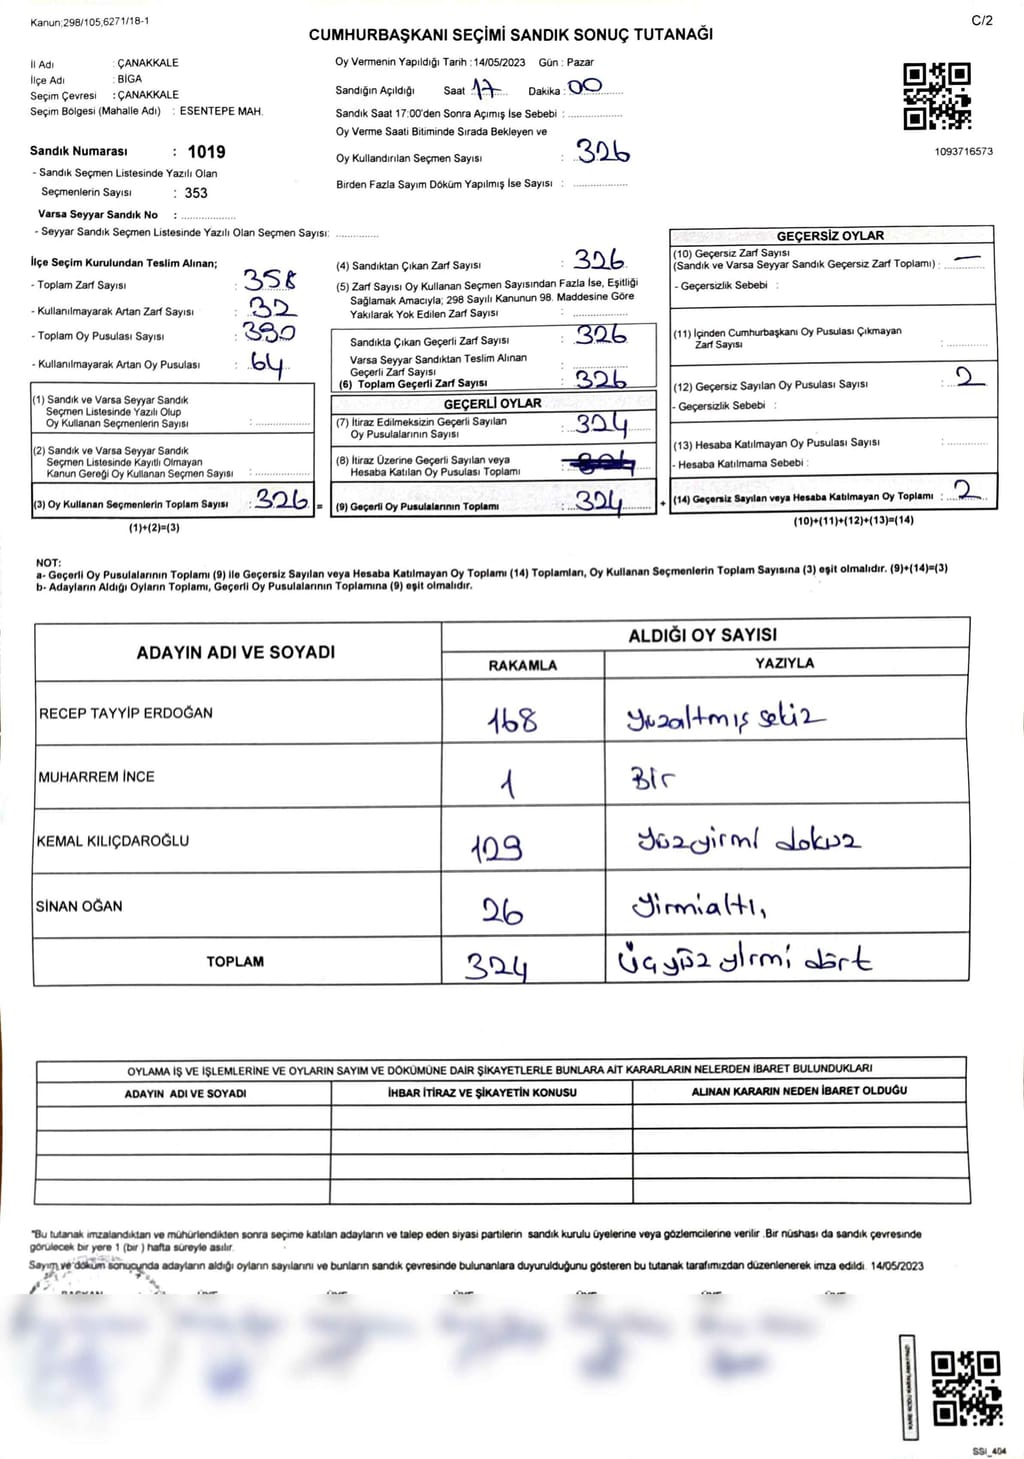 Kanun;298/105,6271/18-1
C/2
CUMHURBAŞKANI SEÇİMİ SANDIK SONUÇ TUTANAĞI
İl Adı : ÇANAKKALE
İlçe Adı : BİGA
Seçim Çevresi : ÇANAKKALE
Seçim Bölgesi (Mahalle Adı) : ESENTEPE MAH.
Sandık Numarası : 1019
- Sandık Seçmen Listesinde Yazılı Olan
Seçmenlerin Sayısı : 353
Varsa Seyyar Sandık No : ..................
- Seyyar Sandık Seçmen Listesinde Yazılı Olan Seçmen Sayısı: ..............
Oy Vermenin Yapıldığı Tarih : 14/05/2023 Gün : Pazar
Sandığın Açıldığı Saat 17 Dakika : 00
Sandık Saat 17:00'den Sonra Açımış İse Sebebi : ..................
Oy Verme Saati Bitiminde Sırada Bekleyen ve
Oy Kullandırılan Seçmen Sayısı : 326
Birden Fazla Sayım Döküm Yapılmış İse Sayısı : ..................
1093716573
İlçe Seçim Kurulundan Teslim Alınan;
- Toplam Zarf Sayısı : 358
- Kullanılmayarak Artan Zarf Sayısı : 32
- Toplam Oy Pusulası Sayısı : 390
- Kullanılmayarak Artan Oy Pusulası : 64
(1) Sandık ve Varsa Seyyar Sandık
Seçmen Listesinde Yazılı Olup
Oy Kullanan Seçmenlerin Sayısı : ..................
(2) Sandık ve Varsa Seyyar Sandık
Seçmen Listesinde Kayıtlı Olmayan
Kanun Gereği Oy Kullanan Seçmen Sayısı : ..................
(3) Oy Kullanan Seçmenlerin Toplam Sayısı : 326 =
(1)+(2)=(3)
(4) Sandıktan Çıkan Zarf Sayısı : 326
(5) Zarf Sayısı Oy Kullanan Seçmen Sayısından Fazla İse, Eşitliği
Sağlamak Amacıyla; 298 Sayılı Kanunun 98. Maddesine Göre
Yakılarak Yok Edilen Zarf Sayısı : ..................
Sandıkla Çıkan Geçerli Zarf Sayısı : 326
Varsa Seyyar Sandıktan Teslim Alınan
Geçerli Zarf Sayısı : ..................
(6) Toplam Geçerli Zarf Sayısı : 326
GEÇERLİ OYLAR
(7) İtiraz Edilmeksizin Geçerli Sayılan
Oy Pusulalarının Sayısı : 324
(8) İtiraz Üzerine Geçerli Sayılan veya
Hesaba Katılan Oy Pusulası Toplamı :
(9) Geçerli Oy Pusulalarının Toplamı : 324 +
GEÇERSİZ OYLAR
(10) Geçersiz Zarf Sayısı
(Sandık ve Varsa Seyyar Sandık Geçersiz Zarf Toplamı) : —
- Geçersizlik Sebebi :
(11) İçinden Cumhurbaşkanı Oy Pusulası Çıkmayan
Zarf Sayısı : ..................
(12) Geçersiz Sayılan Oy Pusulası Sayısı : 2
- Geçersizlik Sebebi :
(13) Hesaba Katılmayan Oy Pusulası Sayısı : ..................
- Hesaba Katılmama Sebebi :
(14) Geçersiz Sayılan veya Hesaba Katılmayan Oy Toplamı : 2
(10)+(11)+(12)+(13)=(14)
NOT:
a- Geçerli Oy Pusulalarının Toplamı (9) ile Geçersiz Sayılan veya Hesaba Katılmayan Oy Toplamı (14) Toplamları, Oy Kullanan Seçmenlerin Toplam Sayısına (3) eşit olmalıdır. (9)+(14)=(3)
b- Adayların Aldığı Oyların Toplamı, Geçerli Oy Pusulalarının Toplamına (9) eşit olmalıdır.
ADAYIN ADI VE SOYADI ALDIĞI OY SAYISI
RAKAMLA YAZIYLA
RECEP TAYYİP ERDOĞAN 168 Yüzaltmış sekiz
MUHARREM İNCE 1 Bir
KEMAL KILIÇDAROĞLU 129 Yüzyirmi dokuz
SİNAN OĞAN 26 Yirmialtı,
TOPLAM 324 Üçyüz yirmi dört
OYLAMA İŞ VE İŞLEMLERİNE VE OYLARIN SAYIM VE DÖKÜMÜNE DAİR ŞİKAYETLERLE BUNLARA AİT KARARLARIN NELERDEN İBARET BULUNDUKLARI
ADAYIN ADI VE SOYADI İHBAR İTİRAZ VE ŞİKAYETİN KONUSU ALINAN KARARIN NEDEN İBARET OLDUĞU
"Bu tutanak imzalandıktan ve mühürlendikten sonra seçime katılan adayların ve talep eden siyasi partilerin sandık kurulu üyelerine veya gözlemcilerine verilir .Bir nüshası da sandık çevresinde
görülecek bir yere 1 (bir ) hafta süreyle asılır.
Sayım ve döküm sonucunda adayların aldığı oyların sayılarını ve bunların sandık çevresinde bulunanlara duyurulduğunu gösteren bu tutanak tarafımızdan düzenlenerek imza edildi. 14/05/2023
SSİ_404